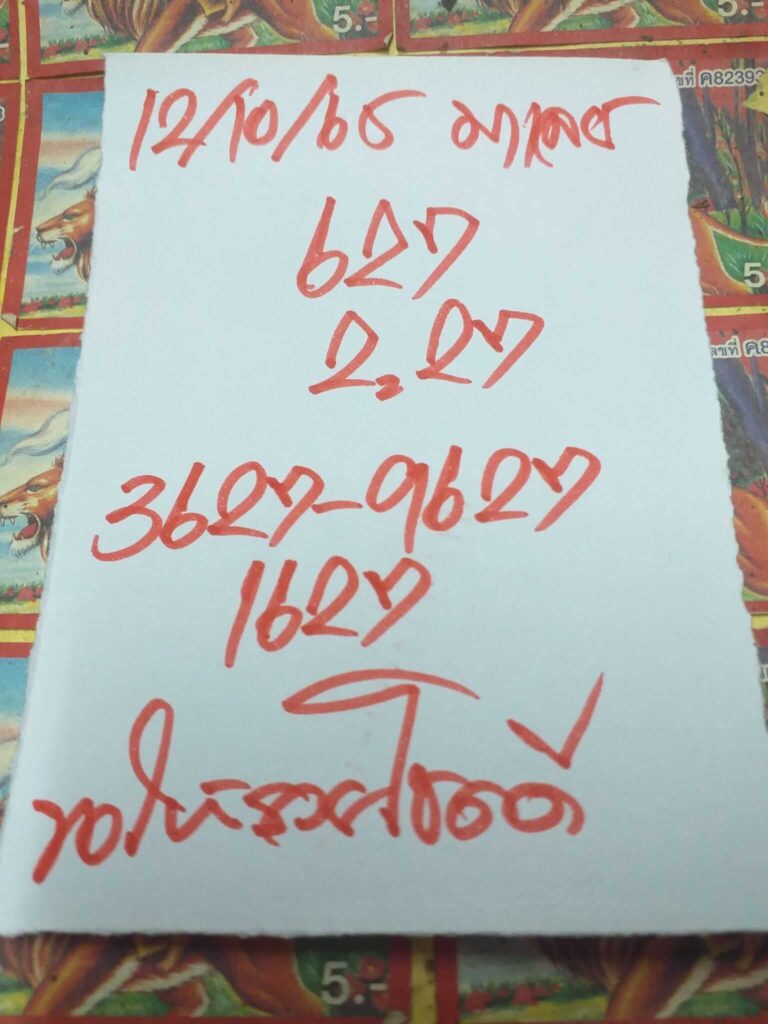 5.-
5.-
ขที่ ค82393
12/10/65 มาเลย์
627
5
2,27
ลขที่ ค8
3627-9627
1627
ขอให้รวยโชคดี
5.-
5.-